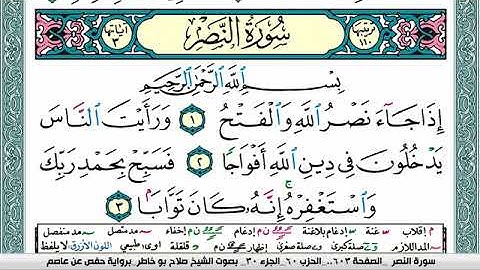 ترتيبها ١١٠ سُورَةُ النَّصْرِ آيَاتُهَا ٣
بِسْمِ ٱللَّهِ ٱلرَّحْمَٰنِ ٱلرَّحِيمِ
إِذَا جَآءَ نَصْرُ ٱللَّهِ وَٱلْفَتْحُ ١ وَرَأَيْتَ ٱلنَّاسَ
يَدْخُلُونَ فِى دِينِ ٱللَّهِ أَفْوَاجًا ٢ فَسَبِّحْ بِحَمْدِ رَبِّكَ
وَٱسْتَغْفِرْهُ إِنَّهُۥ كَانَ تَوَّابًۢا ٣
م إقلاب غنة إدغام بلاغنة ن م إدغام ن م إخفاء مد متصل مد منفصل
المد اللازم صلة كبرى صلة صغرى إظهار ن م قلقلة اوى طبيعي اللون الأزرق لا يلفظ
سورة النصر _ الصفحة ٦٠٣.. الحزب ٦٠ _الجزء ٣٠_ بصوت الشيخ صلاح بو خاطر_برواية حفص عن عاصم